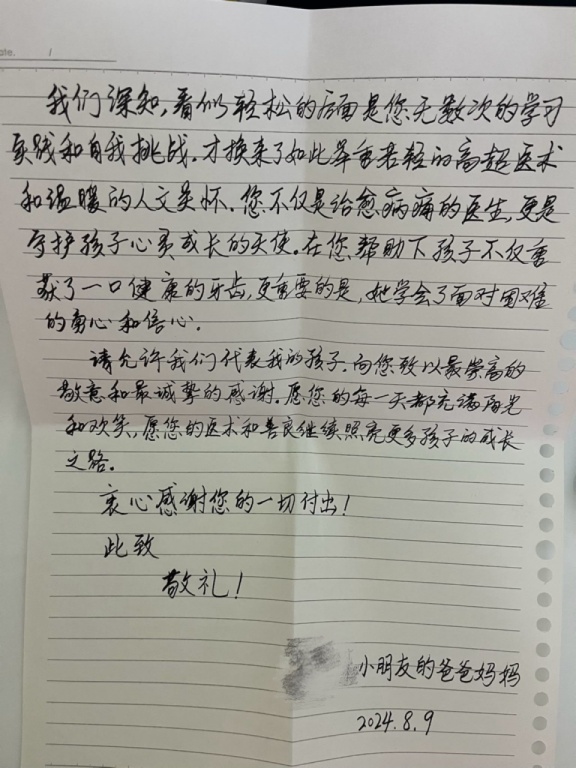 ate. /
我们深知,看似轻松的后面是您无数次的学习
实践和自我挑战.才换来了如此举重若轻的高超医术
和温暖的人文关怀.您不仅是治愈病痛的医生,更是
守护孩子心灵成长的天使.在您帮助下孩子不仅重
获了一口健康的牙齿,更重要的是,她学会了面对困难
的勇心和信心.
请允许我们代表我的孩子.向您致以最崇高的
敬意和最诚挚的感谢.愿您的每一天都充满阳光
和欢笑,愿您的医术和善良继续照亮更多孩子的成长
之路。
衷心感谢您的一切付出!
此致
敬礼!
小朋友的爸爸妈妈
2024.8.9